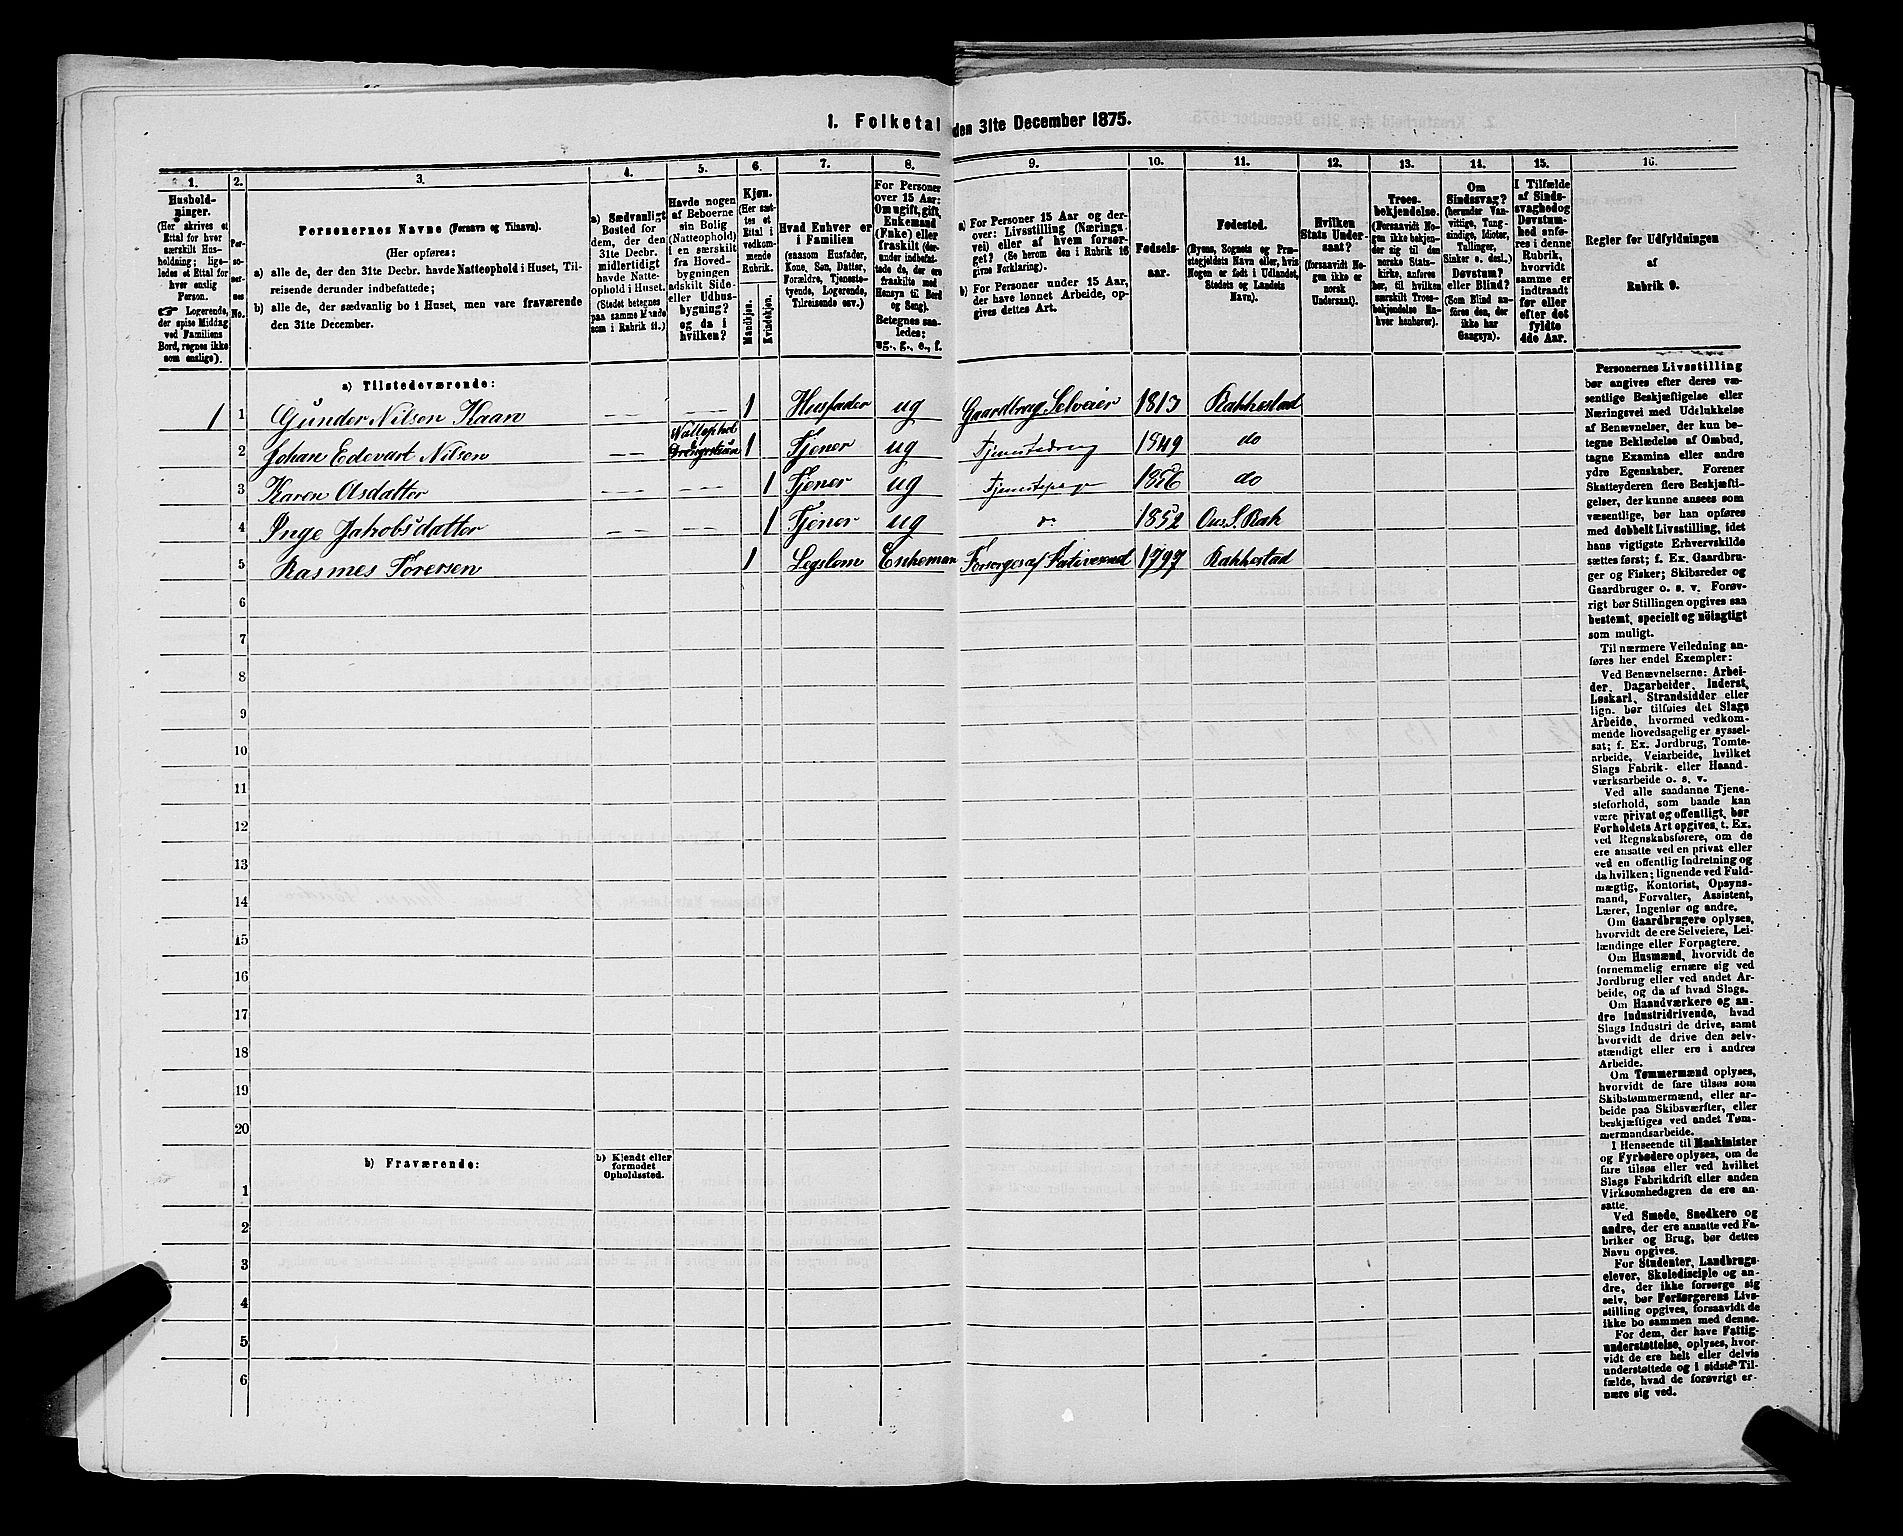 1. Folketal den 31te December 1875.
1. 2. 3. 4. 5. 6. 7. 8. 9. 10. 11. 12. 13. 14. 15. 16.
Hushold-
ninger.
(Her skrives et
Ettal for hver
særskilt Hus-
holdning; lige-
ledes et Ettal for
hver enslig
Person.
☞ Logerende,
der spise Middag
ved Familiens
Bord, regnes ikke
som enslige).
Per-
so-
ner-
nes
No.
Personernes Navne (Fornavn og Tilnavn).
(Her opføres:
a) alle de, der den 31te Decbr. havde Natteophold i Huset, Til-
reisende derunder indbefattede;
b) alle de, der sædvanlig bo i Huset, men vare fraværende
den 31te December.
a) Sædvanligt
Bosted for
dem, der den
31te Decbr.
midlertidigt
havde Natte-
ophold i Huset.
(Stedet betegnes
paa samme Maade
som i Rubrik 11.)
Havde nogen
af Beboerne
sin Bolig
(Natteophold)
i en særskilt
fra Hoved-
bygningen
adskilt Side-
eller Udhus-
bygning?
og da i
hvilken?
Kjøn.
(Her sæt-
tes et
Ettal i
vedkom-
mende
Rubrik.
Mandkjøn.
Kvindekjøn.
Hvad Enhver er
i Familien
(saasom Husfader,
Kone, Søn, Datter,
Forældre, Tjeneste-
tyende, Logerende,
Tilreisende osv.)
For Personer
over 15 Aar:
Om ugift, gift,
Enkemand
(Enke) eller
fraskilt (der-
under indbefat-
tede de, der ere
fraskilte med
Hensyn til Bord
og Seng).
Betegnes saa-
ledes:
ug., g., e., f.
a) For Personer 15 Aar og der-
over: Livsstilling (Nærings-
vei) eller af hvem forsør-
get? (Se herom den i Rubrik 16
givne Forklaring).
b) For Personer under 15 Aar,
der have lønnet Arbeide, op-
gives dettes Art.
Fødsels-
aar.
Fødested.
(Byens, Sognets og Præ-
stegjeldets Navn eller, hvis
Nogen er født i Udlandet,
Stedets og Landets
Navn).
Hvilken
Stats Under-
saat?
(forsaavidt No-
gen ikke er
norsk
Undersaat).
Troes-
bekjendelse.
(Forsaavidt No-
gen ikke bekjen-
der sig til den
norske Stats-
kirke, anføres
her, til hvilken
særskilt Troes-
bekjendelse En-
hver henhører).
Om
Sindssvag?
(herunder Van-
vittige, Tung-
sindige, Idioter,
Tullinger,
Sinker o. desl.)
Døvstum?
eller Blind?
(Som Blind an-
føres den, der
ikke har
Gangsyn).
I Tilfælde
af Sinds-
svaghed og
Døvstum-
hed anfø-
res i denne
Rubrik,
hvorvidt
samme er
indtraadt
før eller
efter det
fyldte
4de Aar.
Regler for Udfyldningen
af
Rubrik 9.
a) Tilstedeværende:
1 1 Gunder Nilsen Kaan — — — — — 1 Husfader ug Gaardbrug Selveier 1813 Rakkestad
2 Johan Edevart Nilsen — — Natteophol i Drengestuen 1 Tjener ug Tjenestedreng 1849 do
3 Karen Olsdatter — — — — — 1 Tjener ug Tjenestepige 1856 do
4 Inge Jakobsdatter — — — — — 1 Tjener ug do 1852 Ous. S. Rak
5 Rasmes Torersen 1 Legslem Enkeman Forsørges af Fativesned 1797 Rakkestad
6
7
8
9
10
11
12
13
14
15
16
17
18
19
20
b) Fraværende:
b) Kjendt eller
formodet
Opholdssted.
1
2
3
4
5
6
Personernes Livsstilling
bør angives efter deres væ-
sentlige Beskjæftigelse eller
Næringsvei med Udelukkelse
af Benævnelser, der kun be-
tegne Beklædelse af Ombud,
tagne Examina eller andre
ydre Egenskaber. Forener
Skatteyderen flere Beskjæfti-
gelser, der kunne ansees som
væsentlige, bør han opføres
med dobbelt Livsstilling, idet
hans vigtigste Erhvervskilde
sættes først; f. Ex. Gaardbru-
ger og Fisker; Skibsreder og
Gaardbruger o. s. v. Forøv-
rigt bør Stillingen opgives saa
bestemt, specielt og nøiagtigt
som muligt.
Til nærmere Veiledning an-
føres her endel Exempler:
Ved Benævnelserne: Arbei-
der, Dagarbeider, Inderst,
Løskarl, Strandsidder eller
lign. bør tilføies det Slags
Arbeide, hvormed vedkom-
mende hovedsagelig er syssel-
sat; f. Ex. Jordbrug, Tomte-
arbeide, Veiarbeide, hvilket
Slags Fabrik- eller Haand-
værksarbeide o. s. v.
Ved alle saadanne Tjene-
steforhold, som baade kan
være privat og offentligt, bør
Forholdets Art opgives, t. Ex.
ved Regnskabsførere, om de
ere ansatte ved en privat eller
ved en offentlig Indretning og
da hvilken; lignende ved Fuld-
mægtig, Kontorist, Opsyns-
mand, Forvalter, Assistent,
Lærer, Ingeniør og andre.
Om Gaardbrugere oplyses,
hvorvidt de ere Selveiere, Lei-
lændinge eller Forpagtere.
Om Husmænd, hvorvidt de
fornemmelig ernære sig ved
Jordbrug eller ved andet Ar-
beide, og da af hvad Slags.
Om Haandværkere og an-
dre Industridrivende, hvad
Slags Industri de drive, samt
hvorvidt de drive den selv-
stændigt eller ere i andres
Arbeide.
Om Tømmermænd oplyses,
hvorvidt de fare tilsøs som
Skibstømmermænd, eller ar-
beide paa Skibsværfter, eller
beskjæftiges ved andet Tøm-
mermandsarbeide.
I Henseende til Maskinister
og Fyrbødere oplyses, om de
fare tilsøs eller ved hvilket
Slags Fabrikdrift eller anden
Virksomhedsgren de ere an-
satte.
Ved Smede, Snedkere og
andre, der ere ansatte ved Fa-
briker og Brug, bør dettes
Navn opgives.
For Studenter, Landbrugs-
elever, Skoledisciple og an-
dre, der ikke forsørge sig
selv, bør Forsørgerens Livs-
stilling opgives, forsaavidt de
ikke bo sammen med denne.
For dem, der have Fattig-
understøttelse, oplyses, hvor-
vidt de ere helt eller delvis
understøttede og i sidste Til-
fælde, hvad de forøvrigt er-
nære sig ved.